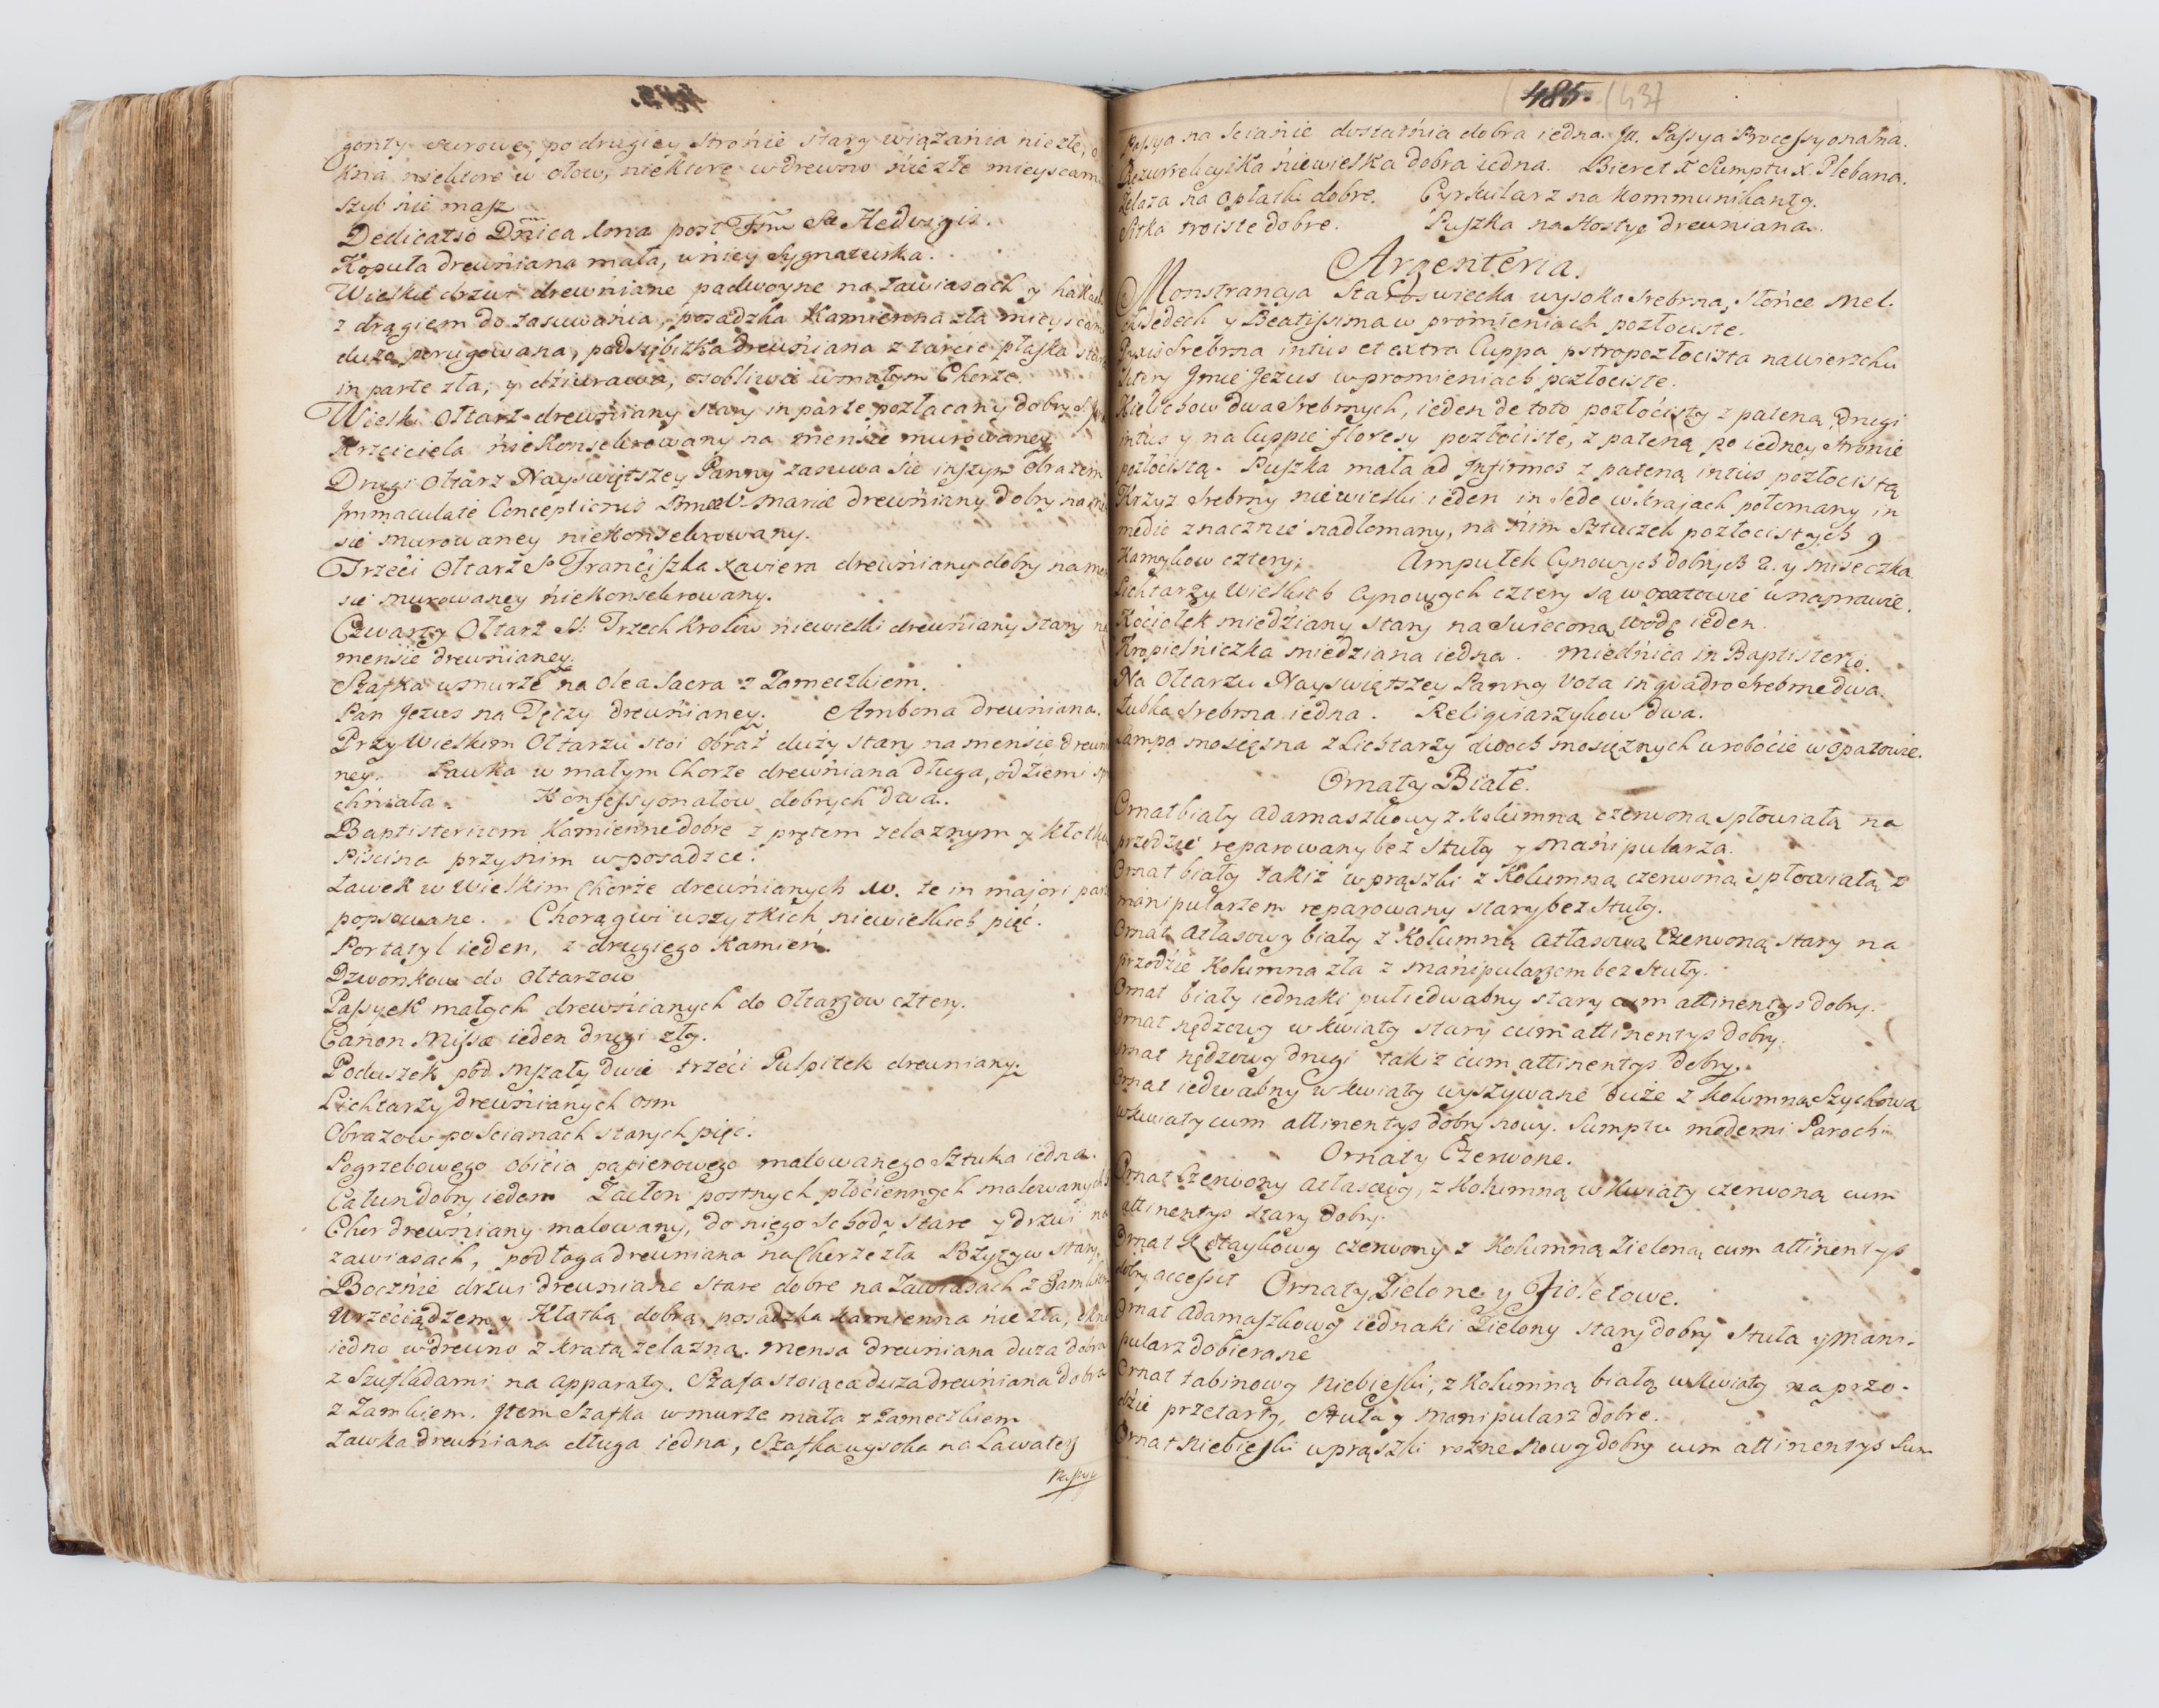 gonty surowe, po drugiey stronie stary wiązania niezłe,
kna niektore w ołow, niektore w drewno niezłe mieyscam
szyb nie masz
Dedicatio Dnica Ima post Fsm Stae Hedvigis.
Kopuła drewniana mała, w niey Sygnaturka.
Wielkie drzwi drewniane padwoyne na zawiasach y hakach
z drągiem do zasuwania, posadzka Kamienna zła mieyscam
duże perugowana, podsiębitka drewniana z tarcic płaska star
in parte zła, y dziurawa, osobliwie w małym Chorze.
Wielki Ołtarz drewniany stary in parte pozłacany dobry S.
Krzciciela niekonsekrowany na mensie murowaney
Drugi Ołtarz Nayswiętszey Panny zasuwa się inszym obrazem
Immaculate Conceptionis Bmae V. Mariae drewniany dobry na
sie murowaney niekonsekrowany.
Trzeci Ołtarz So Franciszka Xaviera drewniany dobry na me
sie murowaney niekonsekrowany.
Czwarty Ołtarz SS: Trzech Krolow niewielki drewniany stary na
mensie drewnianey.
Szafka w murze na Olea Sacra z Zameczkiem.
Pan Jezus na Tęczy drewnianey. Ambona drewniana.
Przy Wielkim Ołtarzu stoi Obraz duży stary na mensie drewn
ney. Ławka w małym Chorze drewniana długa, od ziemi sp
chniała. Konfessyonałow dobrych dwa.
Baptisterium Kamienne dobre z prętem zelaznym y kłotką
Piscina przy nim w posadzce.
Ławek w Wielkim Chorze drewnianych 10. te in majori part
popsowane. Chorągwi wszytkich niewielkich pięć.
Portatyl ieden, z drugiego Kamien.
Dzwonkow do Ołtarzow
Passyek małych drewnianych do Ołtarzow cztery.
Canon Missae ieden drugi zły.
Poduszek pod Mszały dwie trzeci Pulpitek drewniany.
Lichtarzy drewnianych osm
Obrazow po Scianach starych pięć.
Pogrzebowego obicia papierowego malowanego Sztuka iedna.
Całun dobry ieden Zasłon postnych płociennych malowanych
Chor drewniany malowany, do niego Schody stare y drzwi na
zawiasach, podłoga drewniana na Chorze zła Pozytyw stary.
Bocznie drzwi drewniane stare dobre na Zawiasach z Zamkiem
Wrzeciądzem y Kłotką dobrą, posadzka kamienna nie zła, okno
iedno w drewno z kratą zelazną. Mensa drewniana duza dobra
z Szufladami na apparaty. Szafa stoiąca duza drewniana dobra
z Zamkiem. Item Szafka w murze mała z zameczkiem
Ławka drewniana długa iedna, Szafka wysoka na Lawaterz
Passya
485. (437
Passya na Scianie dostatnia dobra iedna. It. Passya Processyonalna.
Rezurrekcyika niewielka dobra iedna. Bieret X Sumptu X Plebana.
Zelaza na Opłatki dobre. Cyrkularz na kommunikanty.
Sitka troiste dobre. Puszka na Hostye drewniana.
Argenteria.
Monstrancya Staroswiecka wysoka srebrna, Słonce Mel-
chisedech y Beatissima w promieniach pozłociste.
Puxis Srebrna intus et extra Cuppa pstropozłocista na wierzchu
litery Imie Jezus w promieniach pozłociste.
Kielichow dwa Srebrnych, ieden de toto pozłocisty z pateną, Drugi
intus y na Cuppie floresy pozłociste, z pateną po iedney stronie
pozłocistą. Puszka mała ad Infirmos z pateną intus pozłocistą
Krzyz srebrny niewielki ieden in Sede w krajach połomany in
medio znacznie nadłomany, na nim Sztuczek pozłocistych 9
Kamykow cztery. Ampułek Cynowych dobrych 2. y Miseczka
Lichtarzy Wielkich Cynowych cztery są w Opatowie w naprawie.
Kociołek miedziany stary na Swieconą Wodę ieden.
Kropielniczka miedziana iedna. Miednica in Baptisterio.
Na Ołtarzu Nayswiętszey Panny Vota in quadro srebrne dwa.
Łubka Srebrna iedna. Reliquiarzykow dwa.
Lampa mosiężna z Lichtarzy dwoch mosięznych w robocie w Opatowie.
Ornaty Białe.
Ornat biały adamaszkowy z Kolumną czerwoną spłowiałą na
przedzie reparowany bez Stuły y Manipularza.
Ornat biały takiz w prąszki z Kolumną czerwoną spłowiałą z
manipularzem reparowany stary bez Stuły.
Ornat Atłasowy biały z Kolumną Atłasową Czerwoną stary na
przodzie Kolumna zła z Manipularzem bez Stuły.
Ornat biały iednaki pułiedwabny stary cum attinentys dobry.
Ornat nędzowy w kwiaty stary cum attinentys dobry.
Ornat nędzowy drugi takiz cum attinentys dobry.
Ornat iedwabny w kwiaty wyszywane duże z Kolumną Szychową
w kwiaty cum attinentys dobry nowy. Sumptu moderni Parochi
Ornaty Czerwone.
Ornat Czerwony atłasowy, z Kolumną w kwiaty czerwoną cum
attinentys stary dobry.
Ornat Kitaykowy czerwony z Kolumną Zieloną cum attinentys
dobry accessit Ornaty Zielone y Fioletowe.
Ornat Adamaszkowy iednaki Zielony stary dobry Stuła y Mani-
pularz dobierane
Ornat tabinowy Niebieski, z Kolumną białą w kwiaty na przo-
dzie przetarty, Stuła y Manipularz dobre.
Ornat Niebieski w prąszki rozne nowy dobry cum attinentys Sum